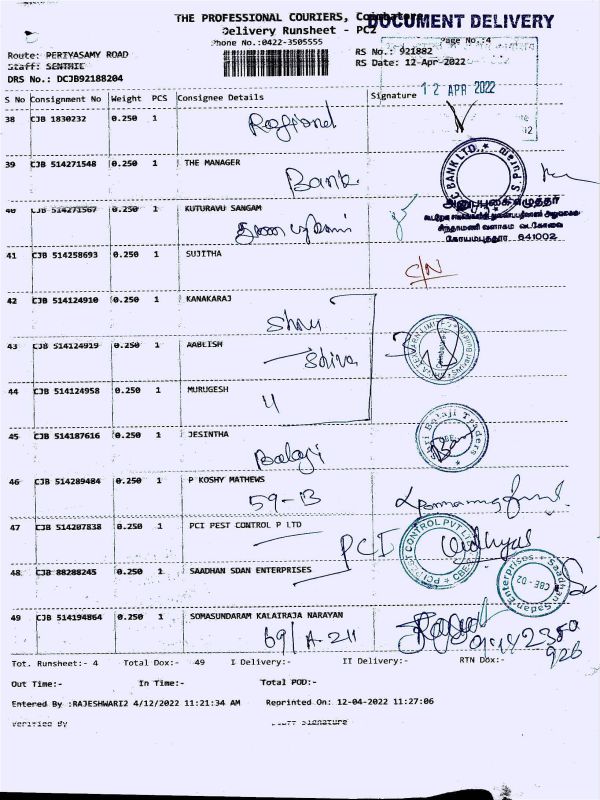 THE PROFESSIONAL COURIERS, Coimbatore
DOCUMENT DELIVERY
Delivery Runsheet - PC2
Phone No.:0422-3505555
Page No.:4
Route: PERIYASAMY ROAD
RS No.: 921882
Staff: SENTHIL
RS Date: 12-Apr-2022
DRS No.: DCJB92188204
12 APR 2022
S No Consignment No Weight PCS Consignee Details Signature
38 CJB 1830232 0.250 1
39 CJB 514271548 0.250 1 THE MANAGER
Bank
BANK LTD.,
40 CJB 514271567 0.250 1 KUTURAVU SANGAM
கோயம்புத்தூர் 641002
41 CJB 514258693 0.250 1 SUJITHA
C/N
42 CJB 514124910 0.250 1 KANAKARAJ
43 CJB 514124919 0.250 1 AABLISH
Shiva
44 CJB 514124958 0.250 1 MURUGESH
45 CJB 514187616 0.250 1 JESINTHA
Balaji
Sri Balaji Traders
46 CJB 514289484 0.250 1 P KOSHY MATHEWS
59-B
47 CJB 514207838 0.250 1 PCI PEST CONTROL P LTD
PCI
Vidhya
48 CJB 88288245 0.250 1 SAADHAN SDAN ENTERPRISES
Saadhan Sadan Enterprises
CBE - 02
49 CJB 514194864 0.250 1 SOMASUNDARAM KALATRAJA NARAYAN
69/A-211
926
Tot. Runsheet:- 4 Total Dox:- 49 I Delivery:- II Delivery:- RTN Dox:-
Out Time:- In Time:- Total POD:-
Entered By :RAJESHWARI2 4/12/2022 11:21:34 AM Reprinted On: 12-04-2022 11:27:06
Verified By Staff Signature